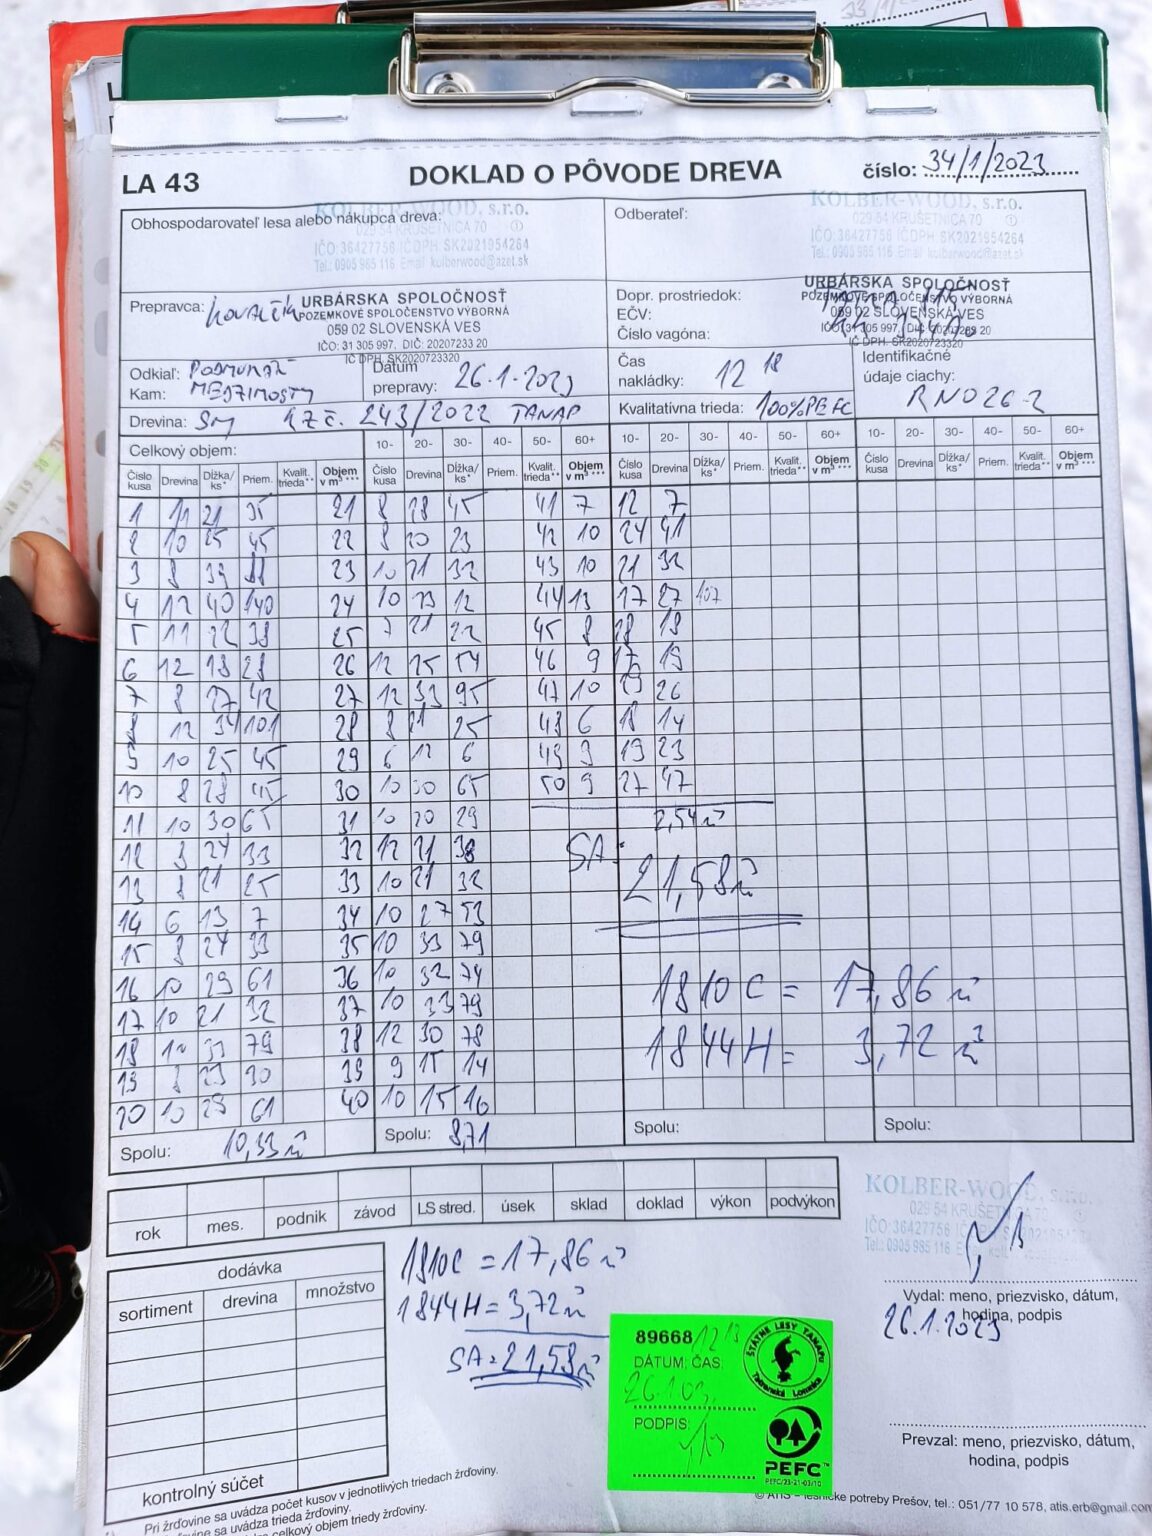 LA 43
DOKLAD O PÔVODE DREVA
číslo: 34/1/2023
Obhospodarovateľ lesa alebo nákupca dreva:
KOLBER-WOOD, s.r.o.
029 54 KRUŠETNICA 70
IČO: 36427756 IČ DPH: SK2021954264
Tel.: 0905 965 116 Email: kolberwood@azet.sk
Odberateľ:
KOLBER-WOOD, s.r.o.
029 54 KRUŠETNICA 70
IČO: 36427756 IČ DPH: SK2021954264
Tel.: 0905 965 116 Email: kolberwood@azet.sk
Prepravca:
URBÁRSKA SPOLOČNOSŤ
POZEMKOVÉ SPOLOČENSTVO VÝBORNÁ
059 02 SLOVENSKÁ VES
IČO: 31 305 997, DIČ: 20207233 20
IČ DPH. SK2020723320
Dopr. prostriedok:
EČV:
Číslo vagóna:
URBÁRSKA SPOLOČNOSŤ
POZEMKOVÉ SPOLOČENSTVO VÝBORNÁ
059 02 SLOVENSKÁ VES
Odkiaľ: PODMURAŇ
Kam: MEDZIMOSTY
Dátum prepravy: 26.1.2023
Čas nakládky: 12 18
Identifikačné údaje ciachy: RN026-2
Drevina: SM KZČ. 243/2022 TANAP
Kvalitatívna trieda: 100% PEFC
Celkový objem:
10- 20- 30- 40- 50- 60+ 10- 20- 30- 40- 50- 60+ 10- 20- 30- 40- 50- 60+
Číslo kusa Drevina Dĺžka/ks* Priem. Kvalit. trieda** Objem v m³ *** Číslo kusa Drevina Dĺžka/ks* Priem. Kvalit. trieda** Objem v m³ *** Číslo kusa Drevina Dĺžka/ks* Priem. Kvalit. trieda** Objem v m³ *** Číslo kusa Drevina Dĺžka/ks* Priem. Kvalit. trieda** Objem v m³ ***
1 21 35 21 8 28 45 41 7 12 7
2 10 25 45 22 8 20 23 42 10 24 41
3 8 39 23 10 21 32 43 10 21 32
4 12 40 140 24 10 12 44 13 17 27 107
5 11 22 38 25 7 21 22 45 8 18 19
6 12 18 28 26 12 25 54 46 9 17 19
7 8 27 42 27 12 33 95 47 10 23 26
8 12 34 101 28 8 21 25 48 6 18 14
9 10 25 45 29 6 12 6 49 9 19 23
10 8 28 45 30 10 30 65 50 9 27 47
11 10 30 65 31 10 20 29 2,54 m³
12 8 24 33 32 12 21 38 SA:
13 8 21 25 33 10 21 32 21,58 m³
14 6 13 7 34 10 27 53
15 8 24 33 35 10 33 79
16 10 29 61 36 10 32 74 1810C = 17,86 m³
17 10 21 32 37 10 33 79
18 33 79 38 12 30 78 1844H = 3,72 m³
19 8 23 30 39 9 15 14
20 10 29 61 40 10 15 16
Spolu: 10,33 m³ Spolu: 8,71 Spolu: Spolu:
rok mes. podnik závod LS stred. úsek sklad doklad výkon podvýkon
KOLBER-WOOD, s.r.o.
029 54 KRUŠETNICA 70
IČO: 36427756
Tel.: 0905 965 116
dodávka
sortiment drevina množstvo
kontrolný súčet
1810C = 17,86 m³
1844H = 3,72 m³
SA = 21,58 m³
Vydal: meno, priezvisko, dátum, hodina, podpis
26.1.2023
Prevzal: meno, priezvisko, dátum, hodina, podpis
89668
DÁTUM, ČAS:
PODPIS:
ŠTÁTNE LESY TANAPU
Tatranská Lomnica
PEFC™
PEFC/23-21-03/10
Pri žrďovine sa uvádza počet kusov v jednotlivých triedach žrďoviny.
sa uvádza trieda žrďoviny.
celkový objem triedy žrďoviny.
© ATIS – lesnícke potreby Prešov, tel.: 051/77 10 578, atis.erb@gmail.com